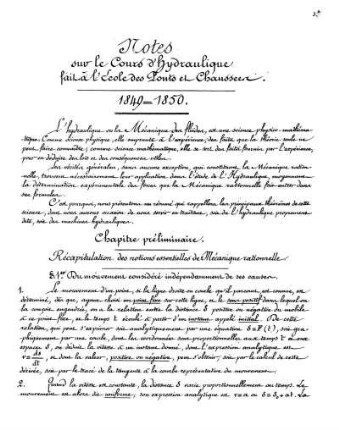 Notes
sur le Cours d'Hydraulique
fait à l'École des Ponts et Chaussées.
1849 — 1850.
L'hydraulique ou la Mécanique des fluides, est une science physico-mathéma-
tique. Comme science physique, elle emprunte à l'expérience, des faits que la théorie seule ne
peut faire connaître; comme science mathématique, elle se sert des faits fournis par l'expérience,
pour en déduire des lois et des conséquences utiles.
Les vérités générales, sans aucune exception, qui constituent la Mécanique ration-
nelle, trouvent nécessairement leur application dans l'étude de l'Hydraulique, moyennant
la détermination expérimentale des forces que la Mécanique rationnelle fait entrer dans
ses formules.
C'est pourquoi, nous présentons un résumé qui rappellera les principaux théorèmes de cette
science, dont nous aurons occasion de nous servir en traitant, soit de l'hydraulique proprement
dite, soit des machines hydrauliques.
Chapitre préliminaire.
Récapitulation des notions essentielles de Mécanique rationnelle
§. 1er Du mouvement considéré indépendamment de ses causes.
1. Le mouvement d'un point, si la ligne droite ou courbe qu'il parcourt, est connue, est
déterminé, dès que, ayant choisi un point fixe sur cette ligne, et le sens positif dans lequel on
la compte, on a la relation entre la distance s positive ou négative du mobile
à ce point fixe, et le temps t écoulé à partir d'un instant appelé initial. De cette
relation, qui peut s'exprimer soit analytiquement par une équation s = F (t), soit gra-
phiquement par une courbe, dont les coordonnées sont proportionnelles aux temps t et aux
espaces s, on déduit la vitesse à un instant donné, dont l'expression analytique est
v = ds/dt, et dont la valeur, positive ou négative, peut s'obtenir, soit par le calcul de cette
dérivée, soit par le tracé de la tangente à la courbe représentative du mouvement.
2. Quand la vitesse est constante, la distance s varie proportionnellement au temps. Le
mouvement est alors dit uniforme; son expression analytique est